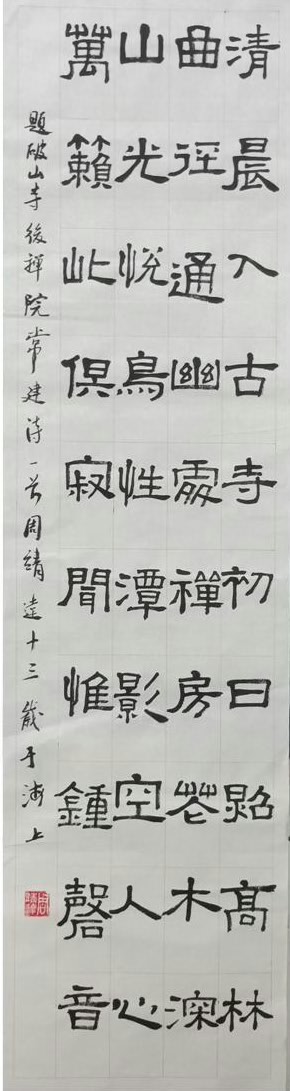 清晨入古寺初日照高林
曲徑通幽處禪房花木深
山光悅鳥性潭影空人心
萬籟此俱寂聞惟鍾磬音
題破山寺後禪院常建诗一首周靖達十三歲于海上